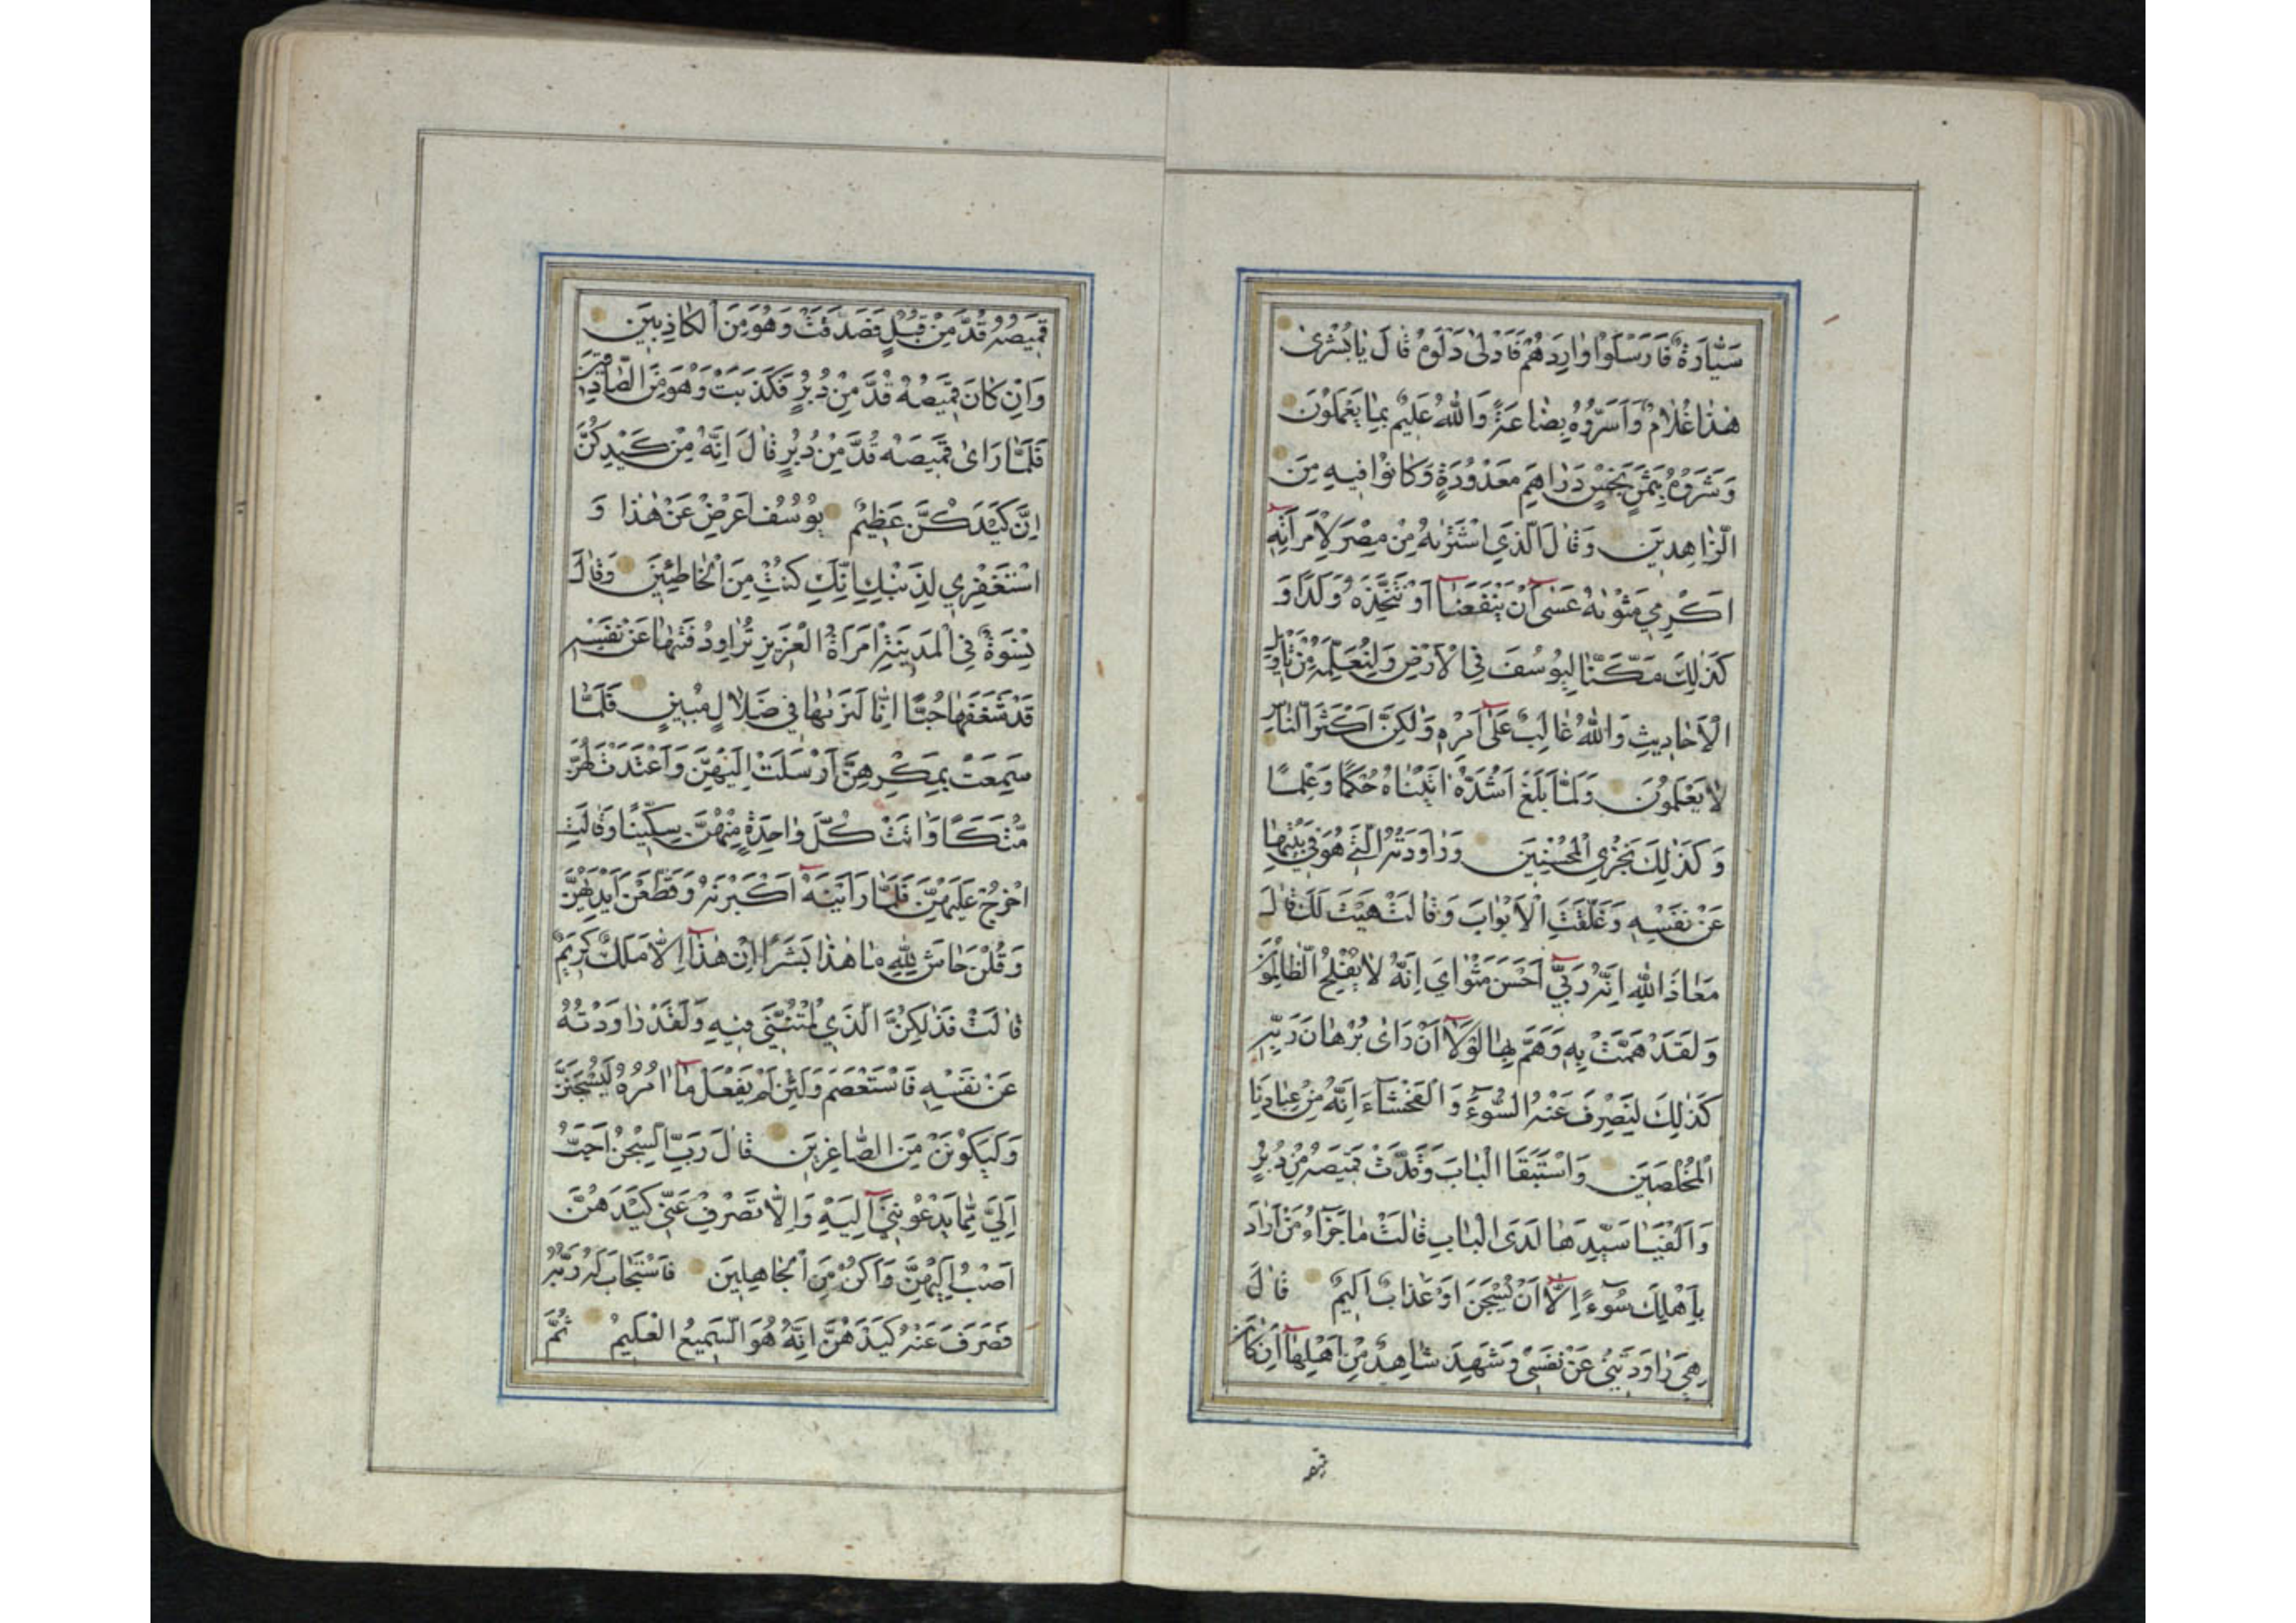 سَيَّارَةٌ فَاَرْسَلُوا وَارِدَهُمْ فَاَدْلٰى دَلْوَهُ قَالَ يَا بُشْرٰى
هٰذَا غُلَامٌ وَاَسَرُّوهُ بِضَاعَةً وَاللّٰهُ عَلِيمٌ بِمَا يَعْمَلُونَ
وَشَرَوْهُ بِثَمَنٍ بَخْسٍ دَرَاهِمَ مَعْدُودَةٍ وَكَانُوا فِيهِ مِنَ
الزَّاهِدِينَ وَقَالَ الَّذِي اشْتَرٰيهُ مِنْ مِصْرَ لِامْرَاَتِهِ
اَكْرِمِي مَثْوٰيهُ عَسٰى اَنْ يَنْفَعَنَا اَوْ نَتَّخِذَهُ وَلَدًا وَ
كَذٰلِكَ مَكَّنَّا لِيُوسُفَ فِي الْاَرْضِ وَلِنُعَلِّمَهُ مِنْ تَاْوِيلِ
الْاَحَادِيثِ وَاللّٰهُ غَالِبٌ عَلٰى اَمْرِهِ وَلٰكِنَّ اَكْثَرَ النَّاسِ
لَا يَعْلَمُونَ وَلَمَّا بَلَغَ اَشُدَّهُ اٰتَيْنَاهُ حُكْمًا وَعِلْمًا
وَكَذٰلِكَ نَجْزِي الْمُحْسِنِينَ وَرَاوَدَتْهُ الَّتِي هُوَ فِي بَيْتِهَا
عَنْ نَفْسِهِ وَغَلَّقَتِ الْاَبْوَابَ وَقَالَتْ هَيْتَ لَكَ قَالَ
مَعَاذَ اللّٰهِ اِنَّهُ رَبِّي اَحْسَنَ مَثْوَايَ اِنَّهُ لَا يُفْلِحُ الظَّالِمُونَ
وَلَقَدْ هَمَّتْ بِهِ وَهَمَّ بِهَا لَوْلَا اَنْ رَاٰى بُرْهَانَ رَبِّهِ
كَذٰلِكَ لِنَصْرِفَ عَنْهُ السُّوءَ وَالْفَحْشَاءَ اِنَّهُ مِنْ عِبَادِنَا
الْمُخْلَصِينَ وَاسْتَبَقَا الْبَابَ وَقَدَّتْ قَمِيصَهُ مِنْ دُبُرٍ
وَاَلْفَيَا سَيِّدَهَا لَدَى الْبَابِ قَالَتْ مَا جَزَاءُ مَنْ اَرَادَ
بِاَهْلِكَ سُوءًا اِلَّا اَنْ يُسْجَنَ اَوْ عَذَابٌ اَلِيمٌ قَالَ
هِيَ رَاوَدَتْنِي عَنْ نَفْسِي وَشَهِدَ شَاهِدٌ مِنْ اَهْلِهَا اِنْ كَانَ
قميصه
قَمِيصُهُ قُدَّ مِنْ قُبُلٍ فَصَدَقَتْ وَهُوَ مِنَ الْكَاذِبِينَ
وَاِنْ كَانَ قَمِيصُهُ قُدَّ مِنْ دُبُرٍ فَكَذَبَتْ وَهُوَ مِنَ الصَّادِقِينَ
فَلَمَّا رَاٰى قَمِيصَهُ قُدَّ مِنْ دُبُرٍ قَالَ اِنَّهُ مِنْ كَيْدِكُنَّ
اِنَّ كَيْدَكُنَّ عَظِيمٌ يُوسُفُ اَعْرِضْ عَنْ هٰذَا وَ
اسْتَغْفِرِي لِذَنْبِكِ اِنَّكِ كُنْتِ مِنَ الْخَاطِئِينَ وَقَالَ
نِسْوَةٌ فِي الْمَدِينَةِ امْرَاَةُ الْعَزِيزِ تُرَاوِدُ فَتٰيهَا عَنْ نَفْسِهِ
قَدْ شَغَفَهَا حُبًّا اِنَّا لَنَرٰيهَا فِي ضَلَالٍ مُبِينٍ فَلَمَّا
سَمِعَتْ بِمَكْرِهِنَّ اَرْسَلَتْ اِلَيْهِنَّ وَاَعْتَدَتْ لَهُنَّ
مُتَّكَاً وَاٰتَتْ كُلَّ وَاحِدَةٍ مِنْهُنَّ سِكِّينًا وَقَالَتِ
اخْرُجْ عَلَيْهِنَّ فَلَمَّا رَاَيْنَهُ اَكْبَرْنَهُ وَقَطَّعْنَ اَيْدِيَهُنَّ
وَقُلْنَ حَاشَ لِلّٰهِ مَا هٰذَا بَشَرًا اِنْ هٰذَا اِلَّا مَلَكٌ كَرِيمٌ
قَالَتْ فَذٰلِكُنَّ الَّذِي لُمْتُنَّنِي فِيهِ وَلَقَدْ رَاوَدْتُهُ
عَنْ نَفْسِهِ فَاسْتَعْصَمَ وَلَئِنْ لَمْ يَفْعَلْ مَا اٰمُرُهُ لَيُسْجَنَنَّ
وَلَيَكُونَنْ مِنَ الصَّاغِرِينَ قَالَ رَبِّ السِّجْنُ اَحَبُّ
اِلَيَّ مِمَّا يَدْعُونَنِي اِلَيْهِ وَاِلَّا تَصْرِفْ عَنِّي كَيْدَهُنَّ
اَصْبُ اِلَيْهِنَّ وَاَكُنْ مِنَ الْجَاهِلِينَ فَاسْتَجَابَ لَهُ رَبُّهُ
فَصَرَفَ عَنْهُ كَيْدَهُنَّ اِنَّهُ هُوَ السَّمِيعُ الْعَلِيمُ ثُمَّ